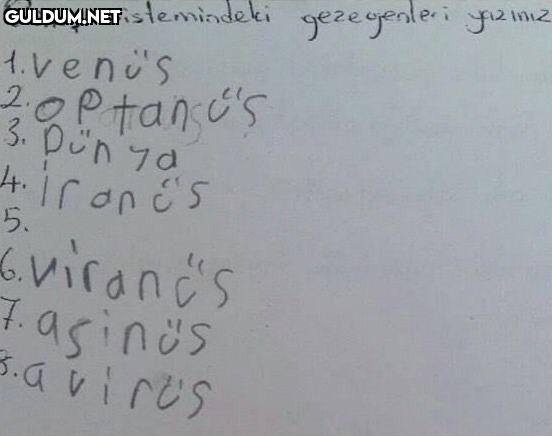 GULDUM.NET
sistemindeki gezegenleri yazınız
1. venüs
2. optanüs
3. Dünya
4. iranüs
5.
6. viranüs
7. asinüs
8. avirüs